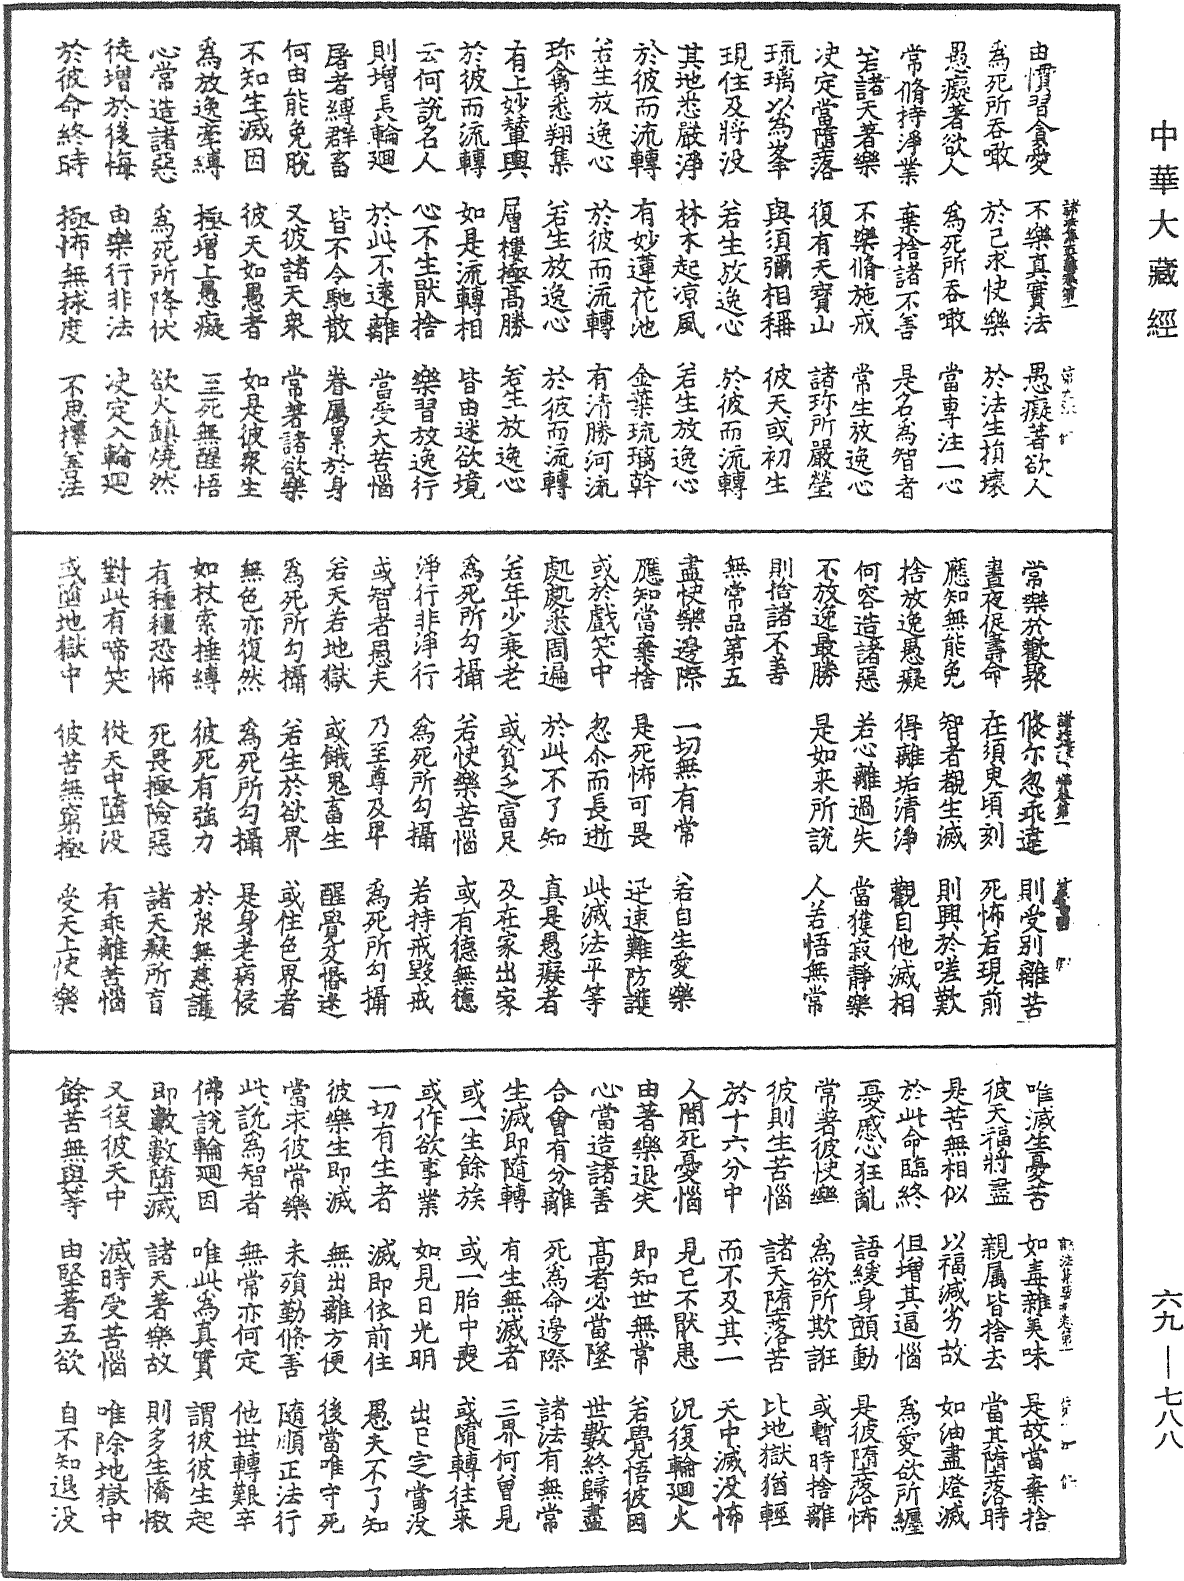 中華大藏經
由慣習貪愛　不樂真實法　愚癡著欲人
為死所吞噉　於己求快樂　於法生損壞
愚癡著欲人　為死所吞噉　當專注一心
常脩持淨業　棄捨諸不善　是名為智者
若諸天著樂　不樂脩施戒　常生放逸心
决定當墮落　復有天寶山　諸珎所嚴瑩
琉璃以為峯　與須彌相稱　彼天或初生
現住及將没　若生放逸心　於彼而流轉
其地悉嚴淨　林木起凉風　若生放逸心
於彼而流轉　有妙蓮花池　金葉琉璃幹
若生放逸心　於彼而流轉　有清勝河流
珎禽悉翔集　若生放逸心　於彼而流轉
有上妙輦輿　層樓極高勝　若生放逸心
於彼而流轉　如是流轉相　皆由迷欲境
云何說名人　心不生猒捨　樂習放逸行
則增長輪迴　於此不遠離　當受大苦惱
屠者縛群畜　皆不令馳散　眷屬累於身
何由能免脫　又彼諸天衆　常著諸欲樂
不知生滅因　彼天如愚者　如是彼衆生
為放逸牽縛　極增上愚癡　三死無醒悟
心常造諸惡　為死所降伏　欲火鎮燒然
徒增於後悔　由樂行非法　决定入輪迴
於彼命終時　極怖無捄度　不思擇善法
常樂於歡聚　倐尓忽乖違　則受別離苦
晝夜促壽命　在須臾頃刻　死怖若現前
應知無能免　智者觀生滅　則興於嗟歎
捨放逸愚癡　得離垢清淨　觀自他滅相
何容造諸惡　若心離過失　當獲寂靜樂
不放逸最勝　是如来所說　人若悟無常
則捨諸不善
無常品第五
盡快樂邊際　一切無有常　若自生愛樂
應知當棄捨　是死怖可畏　迅速難防護
或於戲笑中　忽尒而長逝　此滅法平等
處處悉周遍　於此不了知　真是愚癡者
若年少衰老　或貧乏富足　及在家出家
為死所勾攝　若快樂苦惱　或有德無德
淨行非淨行　為死所勾攝　若持戒毀戒
或智者愚夫　乃至尊及卑　為死所勾攝
若天若地獄　或餓鬼畜生　醒覺及惛迷
為死所勾攝　若生於欲界　或住色界者
無色亦復然　為死所勾攝　是身老病侵
如杖索捶縛　彼死有強力　於衆無慈護
有種種恐怖　死畏極險惡　諸天癡所盲
對此有啼笑　從天中墮没　有乖離苦惱
或墮地獄中　彼苦無窮極　受天上快樂
唯滅生憂苦　如毒雜美味　是故當棄捨
彼天福將盡　親属皆捨去　當其墮落時
是苦無相似　以福減劣故　如油盡燈滅
於此命臨終　但增其逼惱　為愛欲所纏
憂慼心狂亂　語緩身顫動　是彼墮落怖
常著彼快樂　為欲所欺誑　或暫時捨離
彼則生苦惱　諸天墮落苦　比地獄猶輕
於十六分中　而不及其一　天中滅没怖
人間死憂惱　見已不猒患　況復輪迴火
由著樂退失　即知世無常　若覺悟彼因
心當造諸善　高者必當墜　世數終歸盡
合會有分離　死為命邊際　諸法有無常
生滅即隨轉　有生無滅者　三界何曾見
或一生餘族　或一胎中喪　或隨轉往来
或作欲事業　如見日光明　出已定當没
一切有生者　滅即依前住　愚夫不了知
彼樂生即滅　無出離方便　後當唯守死
當求彼常樂　未殞勤脩善　隨順正法行
此說為智者　無常亦何定　他世轉艱辛
佛說輪迴因　唯此為真實　謂彼彼生起
即數數墮滅　諸天著樂故　則多生憍慠
又復彼天中　滅時受苦惱　唯除地獄中
餘苦無與等　由堅著五欲　自不知退没
六九—七八八